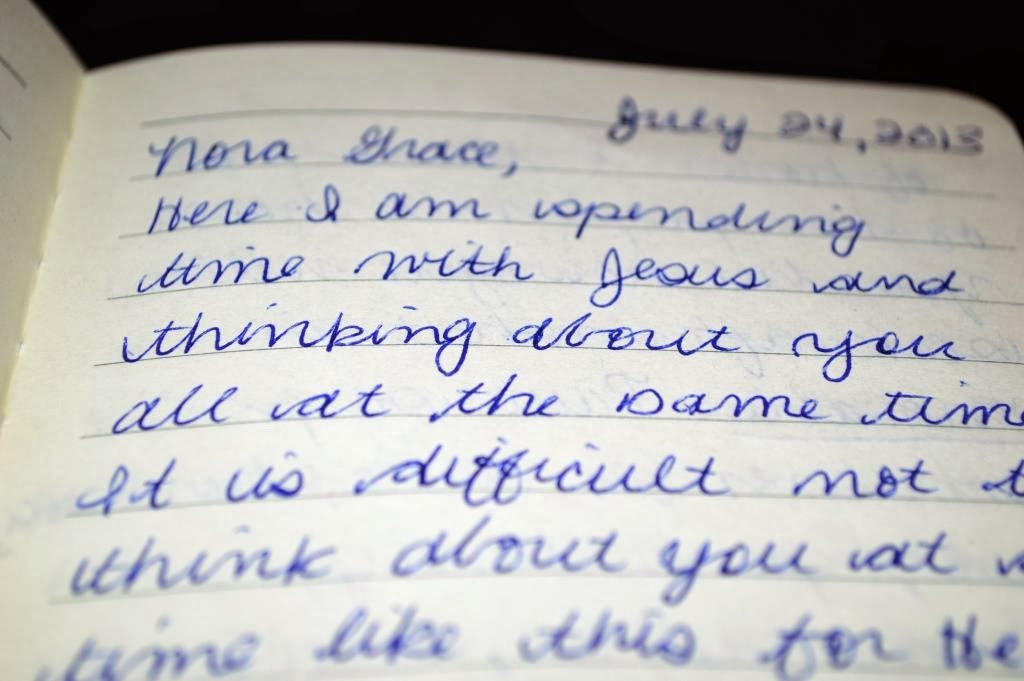 July 24, 2013
Nora Grace,
Here I am spending
time with Jesus and
thinking about you
all at the same time
It is difficult not t
think about you at
time like this for He